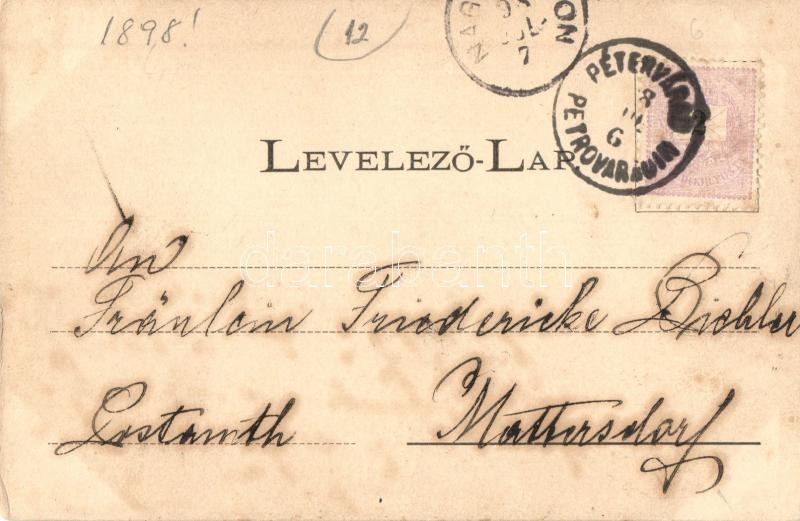 1898!
12
6
JUL
7
PÉTERVÁRAD
8
6
PETROVARADIN
2
LEVELEZŐ-LAP.
darabanth
An
Fräulein Friedericke Bichler
Postamth Mattersdorf